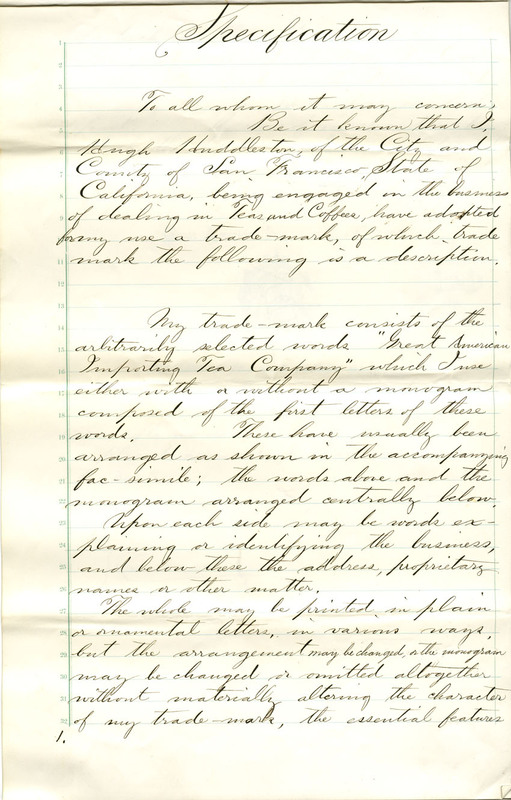 Specification
To all whom it may concern,
Be it known that I,
Hugh Huddleston, of the City and
County of San Francisco, State of
California, being engaged in the business
of dealing in Teas and Coffees, have adopted
for my use a trade-mark, of which trade
mark the following is a description.
My trade-mark consists of the
arbitrarily selected words "Great American
Importing Tea Company" which I use
either with or without a monogram
composed of the first letters of these
words. These have usually been
arranged as shown in the accompanying
fac-simile; the words above and the
monogram arranged centrally below.
Upon each side may be words ex-
plaining or identifying the business,
and below these the address, proprietary
names or other matter.
The whole may be printed in plain
or ornamental letters, in various ways,
but the arrangement may be changed, or the monogram
may be changed or omitted altogether
without materially altering the character
of my trade-mark, the essential features
1.